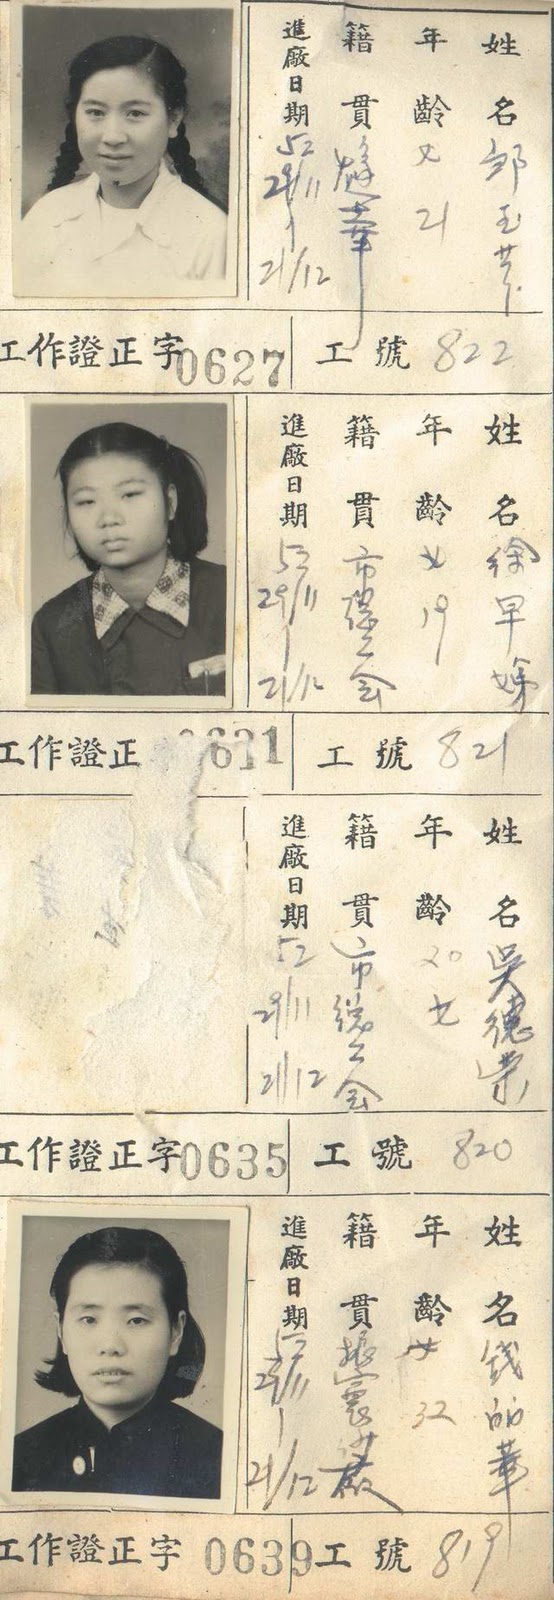 姓名 玉
年齡 女 21
籍貫
進廠日期 52 29/11 21/12
工作證正字 0627 工號 822
姓名 徐早娣
年齡 女 19
籍貫 市總工会
進廠日期 52 29/11 21/12
工作證正 0631 工號 821
姓名 吳德榮
年齡 20 女
籍貫 市總工会
進廠日期 52 29/11 21/12
工作證正字 0635 工號 820
姓名 钱 華
年齡 女 32
籍貫 振寰 廠
進廠日期 52 29/11 21/12
工作證正字 0639 工號 819